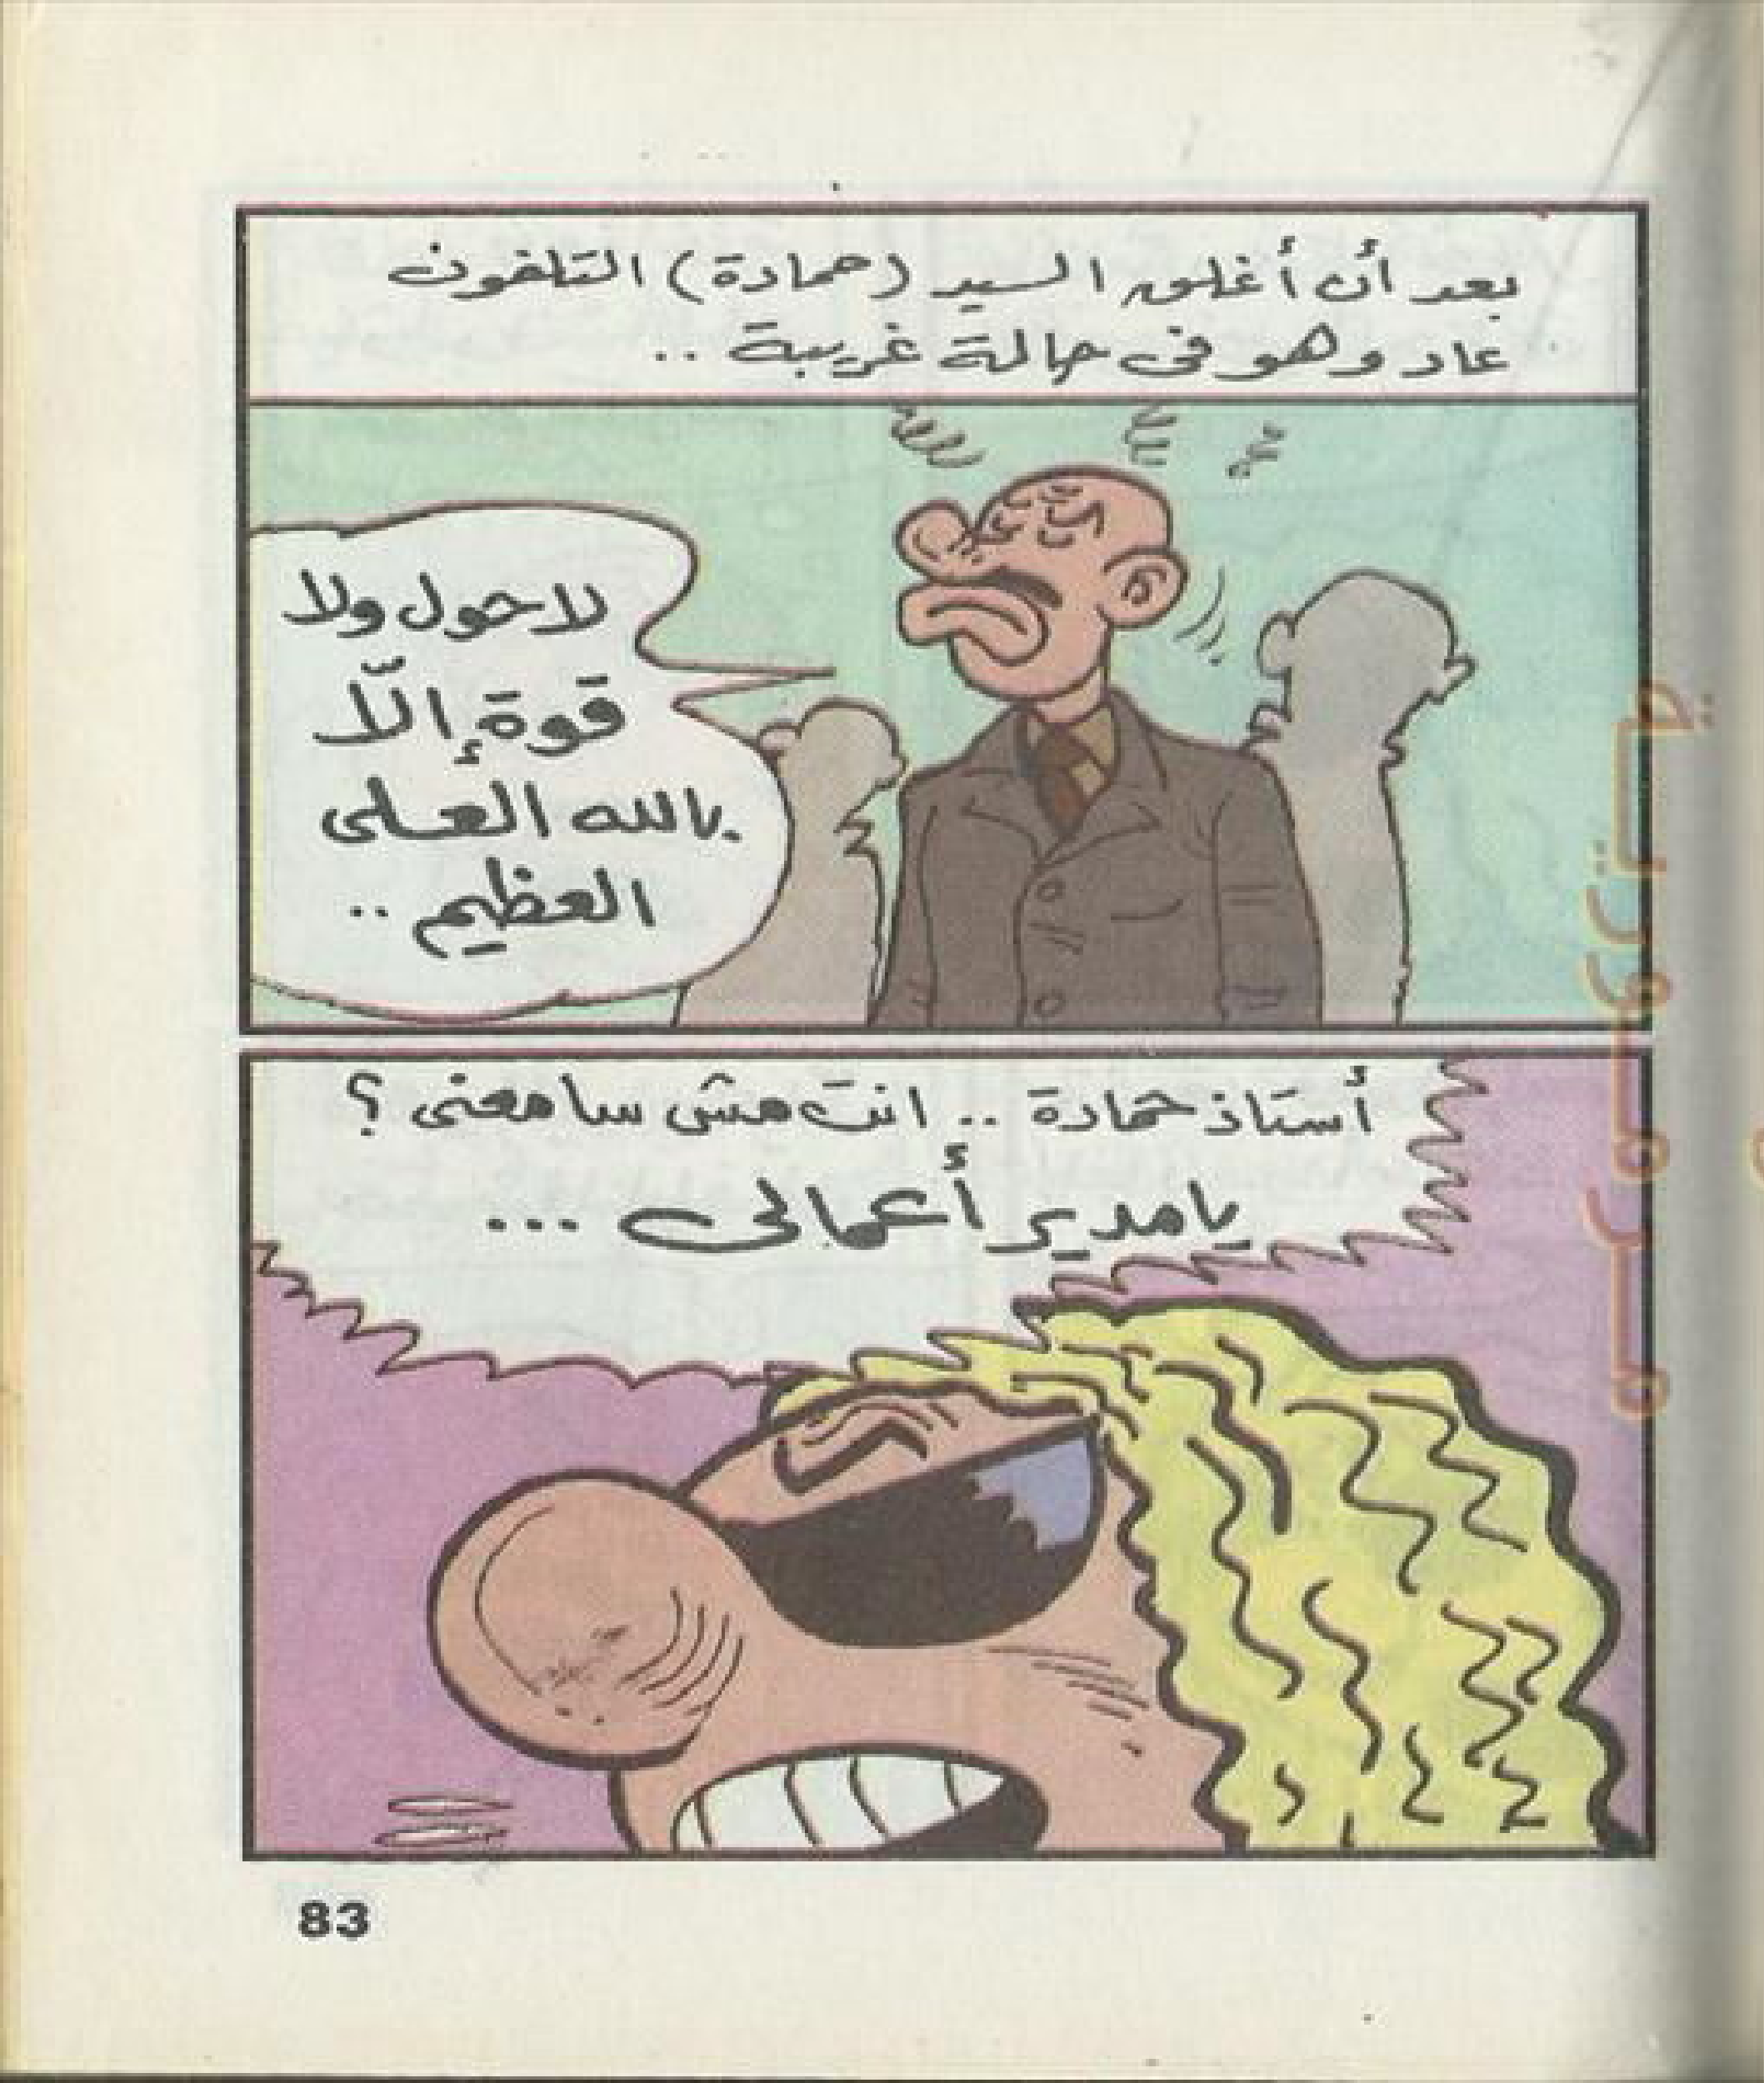 بعد أن أغلق السيد (حمادة) التلفون
عاد وهو فى حالة غريبة ..
لا حول ولا
قوة إلّا
بالله العلى
العظيم ..
أستاذ حمادة .. انت مش سامعنى ؟
يا مدير أعمالى ...
83